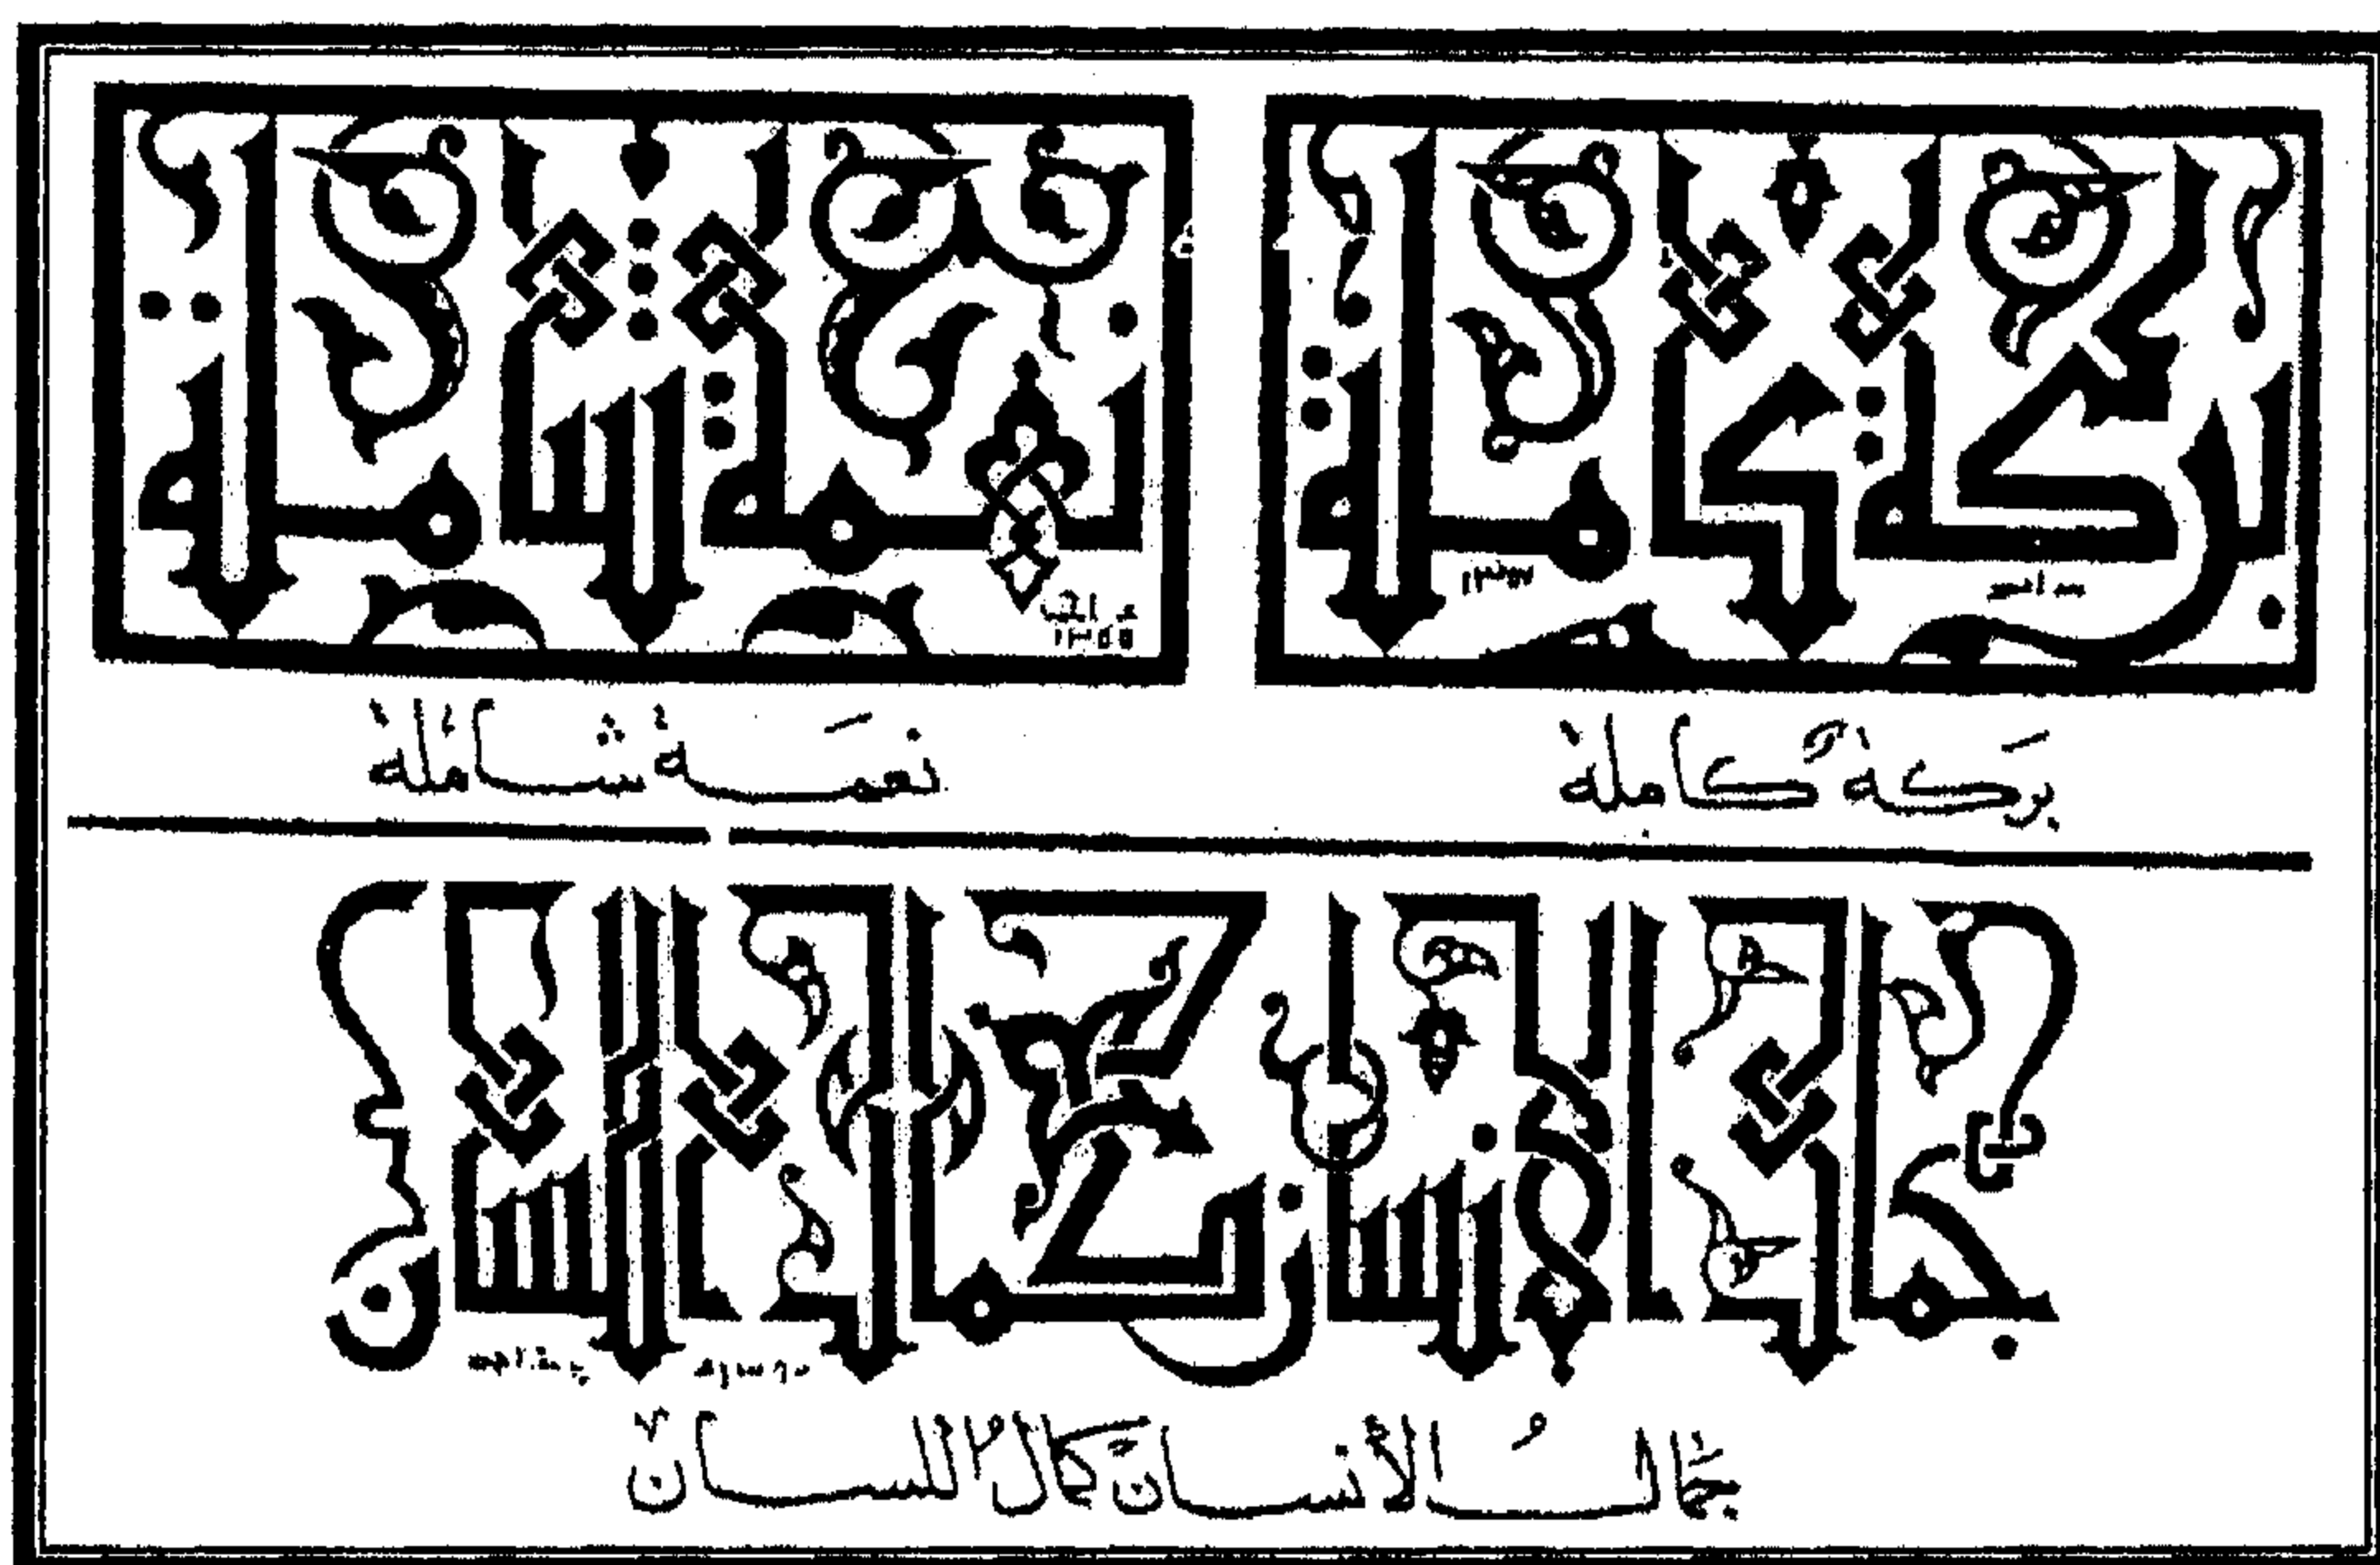 بركة كاملة
نعمة شاملة
١٣٥٥
بَركة كاملة
نعمَة شاملة
جمال الإنسان كمال اللسان
جمالُ الأنسان كمال اللسان